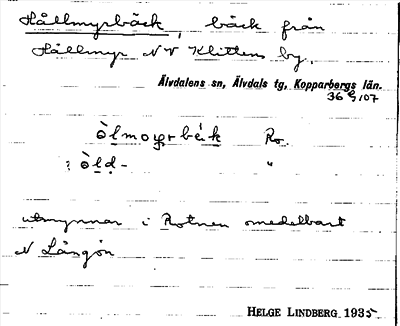 Hållmyrbäck, bäck från
Hållmyr NV Klittens by.
Älvdalens sn, Älvdals tg, Kopparbergs län.
36 G, 107
òlmoyrbèk Ro.
: òld- "
utmynnar i Rotnen omedelbart
N Långön
HELGE LINDBERG 1935